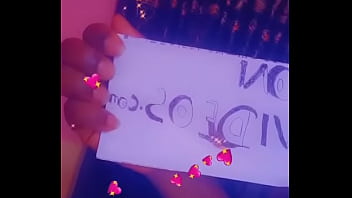 ON
VIDEOS.com